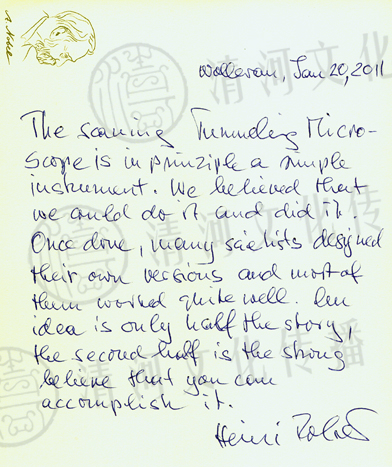 A. Nobel
Wollerau, Jan 20, 2011
The scaning Tunneling Micro-
scope is in prinziple a simple
instrument. We believed that
we could do it and did it.
Once done, many scietists designed
their own versions and most of
them worked quite well. An
idea is only half the story,
the second half is the strong
believe that you can
accomplish it.
Heini Rohrer
清河文化
清河文化传
清河文化传播